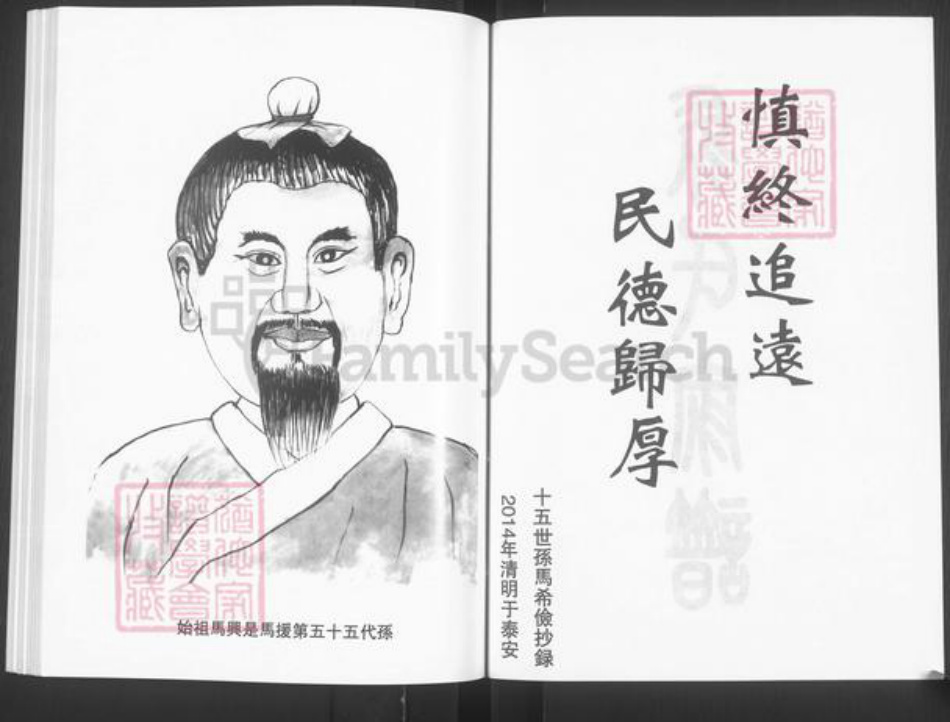 慎終追遠
民德歸厚
十五世孫馬希儉抄録
2014年清明于泰安
始祖馬興是馬援第五十五代孫
FamilySearch